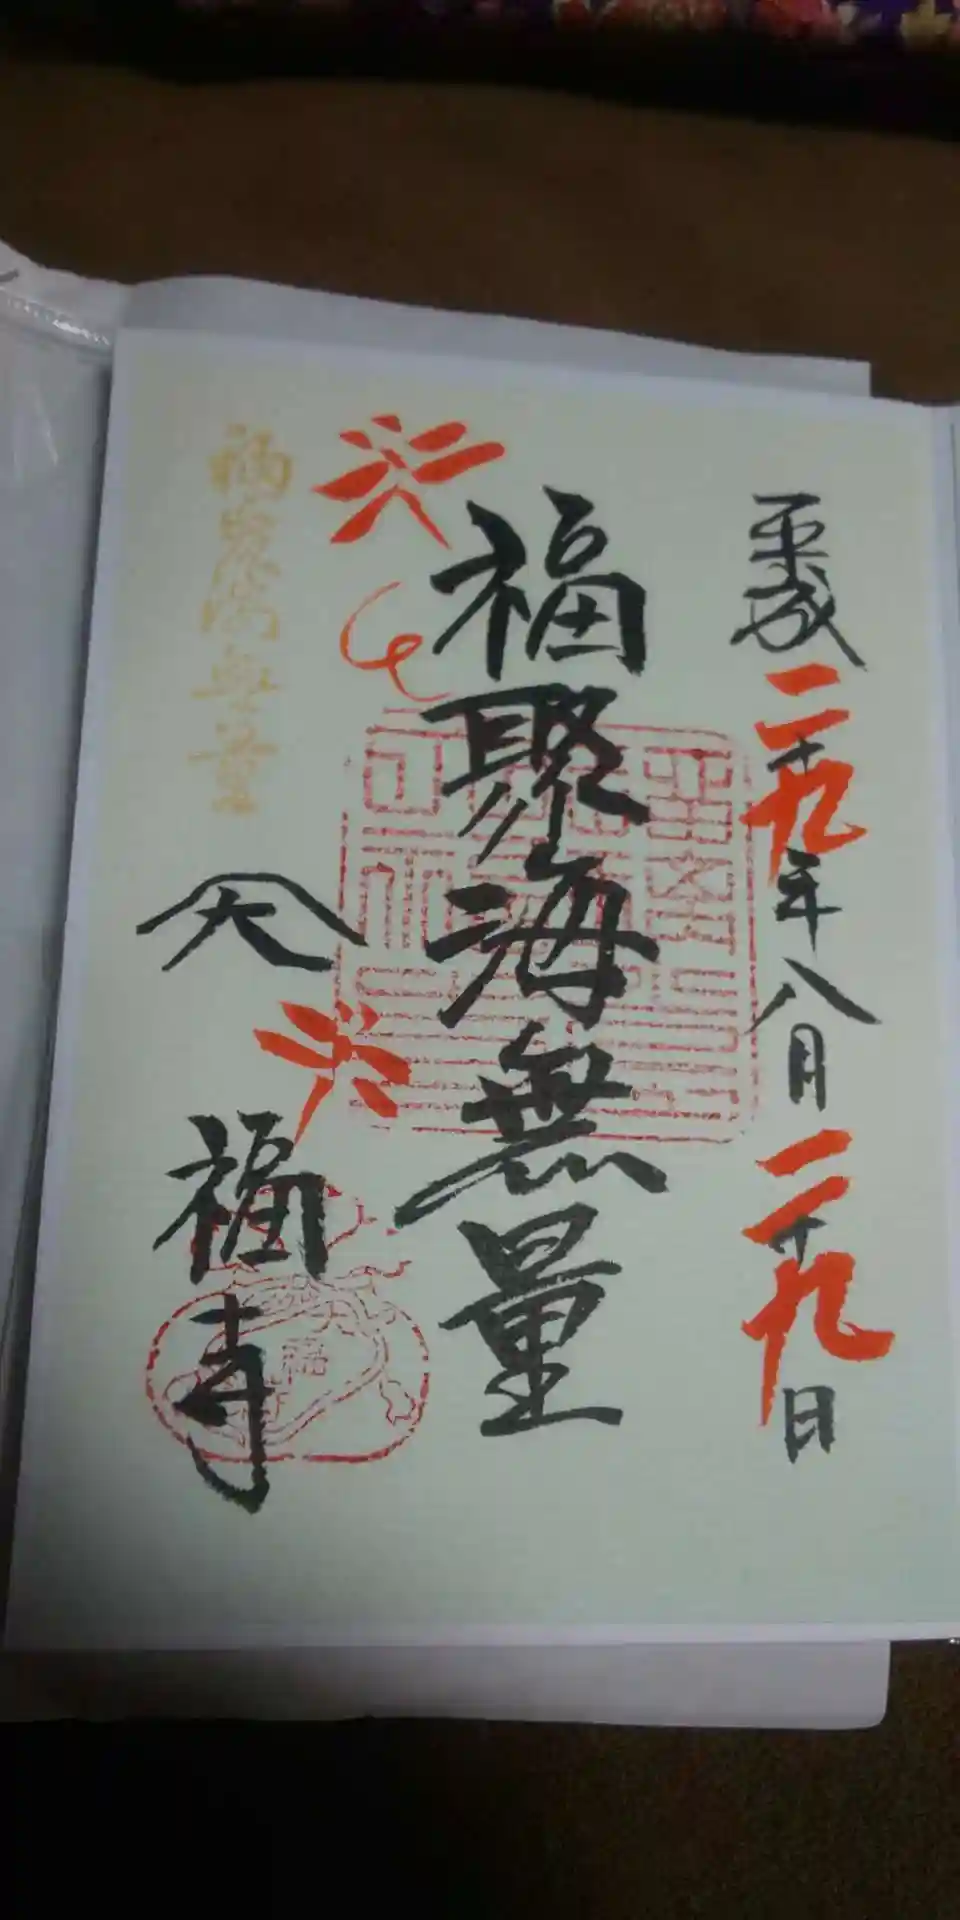 平成二十九年八月二十九日
福聚海無量
福聚海無量
大福寺
福